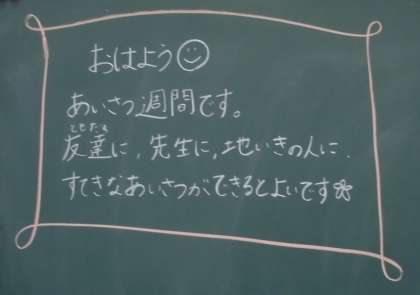 おはよう☺
あいさつ週間です。
ともだち
友達に、先生に、地いきの人に、
すてきなあいさつができるとよいです✿